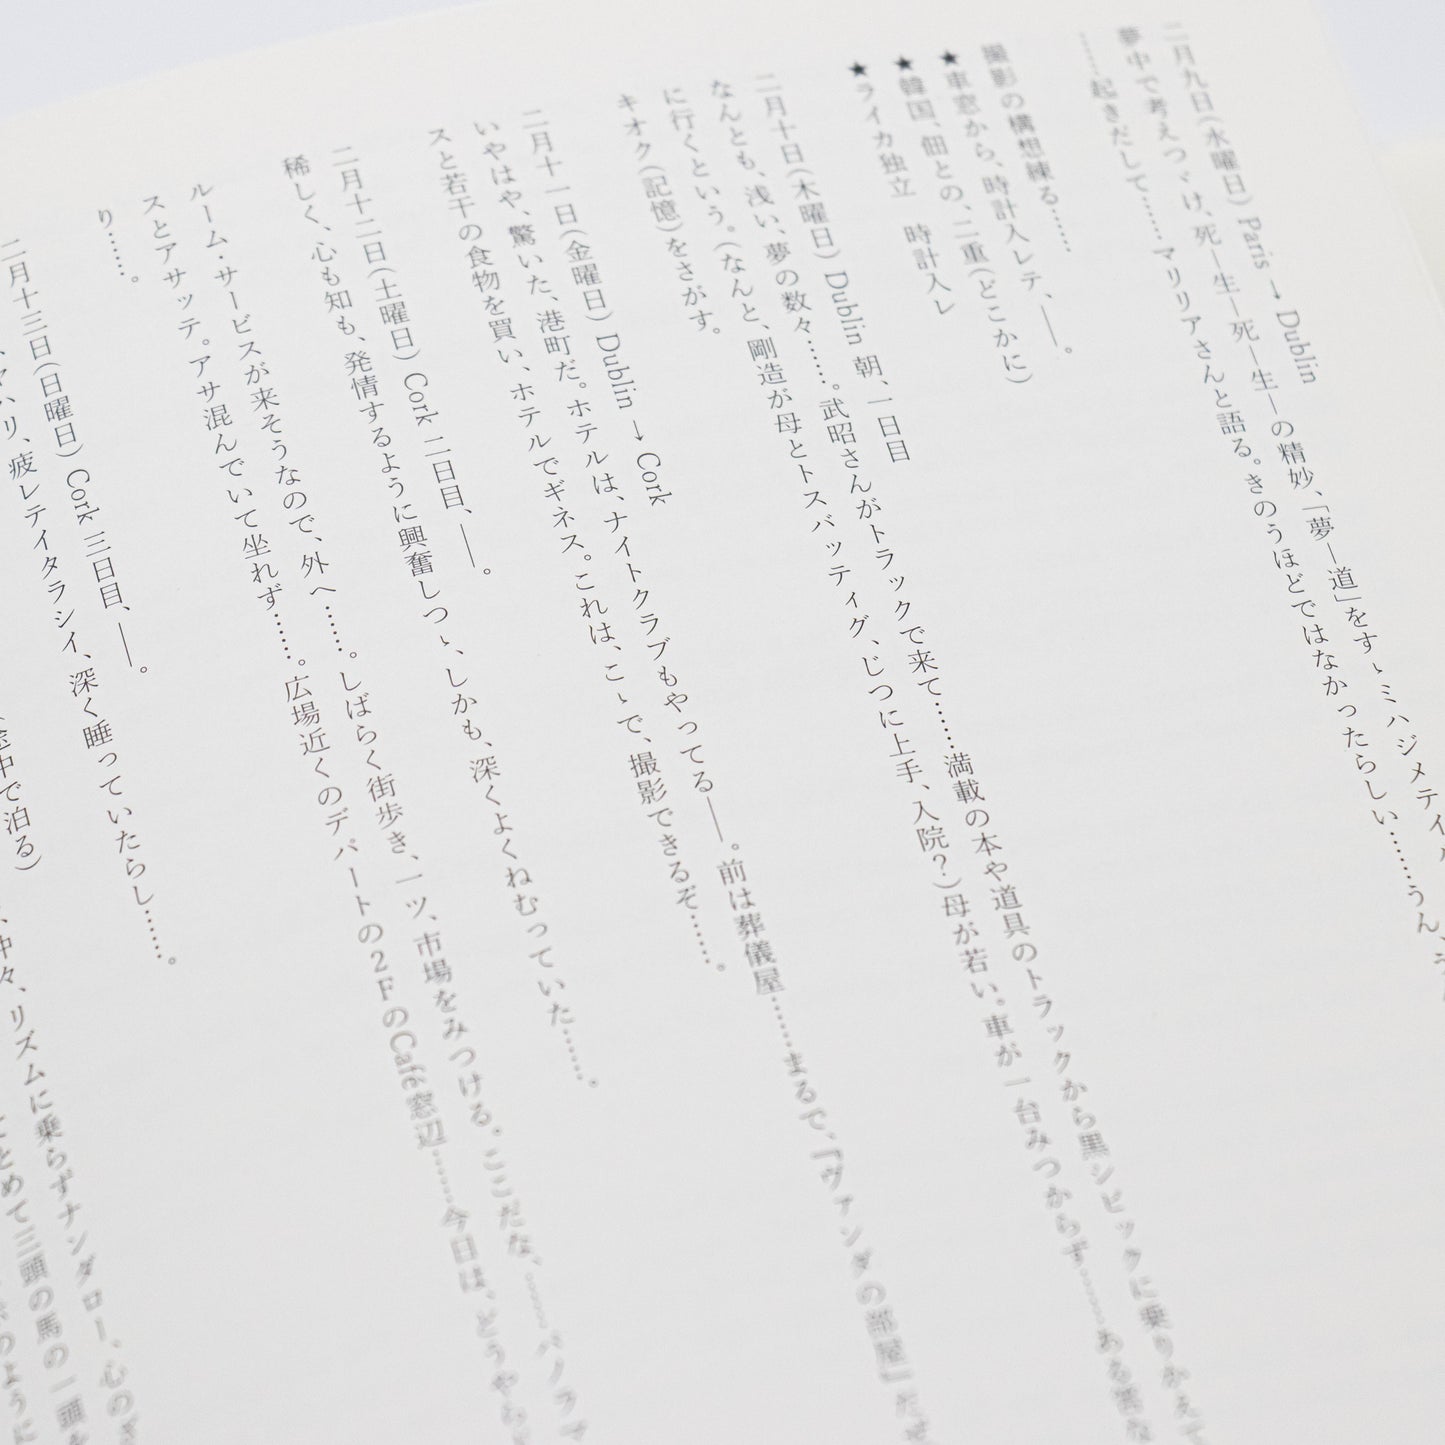 二月九日(水曜日) Paris → Dublin
夢中で考えつゞけ、死―生―死―生―の精妙、「夢―道」をすゝミハジメテイ
……起きだして…… マリリアさんと語る。きのうほどではなかったらしい……うん、
撮影の構想練る……
★車窓から、時計入レテ、――。
★韓国、佃との、二重(どこかに)
★ライカ独立 時計入レ
二月十日(木曜日) Dublin 朝、一日目
なんとも、浅い、夢の数々……。武昭さんがトラックで来て……満載の本や道具のトラックから黒シビックに乗りかえて
に行くという。(なんと、剛造が母とトスバッティグ、じつに上手、入院?)母が若い。車が一台みつからず……ある
キオク(記憶)をさがす。
二月十一日(金曜日) Dublin → Cork
いやはや、驚いた、港町だ。ホテルは、ナイトクラブもやってる――。前は葬儀屋……まるで、『ヴァンダの部屋』だぜ
スと若干の食物を買い、ホテルでギネス。これは、こゝで、撮影できるぞ……。
二月十二日(土曜日) Cork 二日目、――。
稀しく、心も知も、発情するように興奮しつゝ、しかも、深くよくねむっていた……。
ルーム・サービスが来そうなので、外へ……。しばらく街歩き、一ツ、市場をみつける。ここだな、……パノラマ
スとアサッテ。アサ混んでいて坐れず……。広場近くのデパートの2FのCafé窓辺……今日は、どうやら
り……。
二月十三日(日曜日) Cork 三日目、――。
ヤハリ、疲レテイタラシイ、深く睡っていたらし……。
途中で泊る)
、中々、リズムに乗らずナンダロー、心の
とめて三頭の馬の一頭を
のように